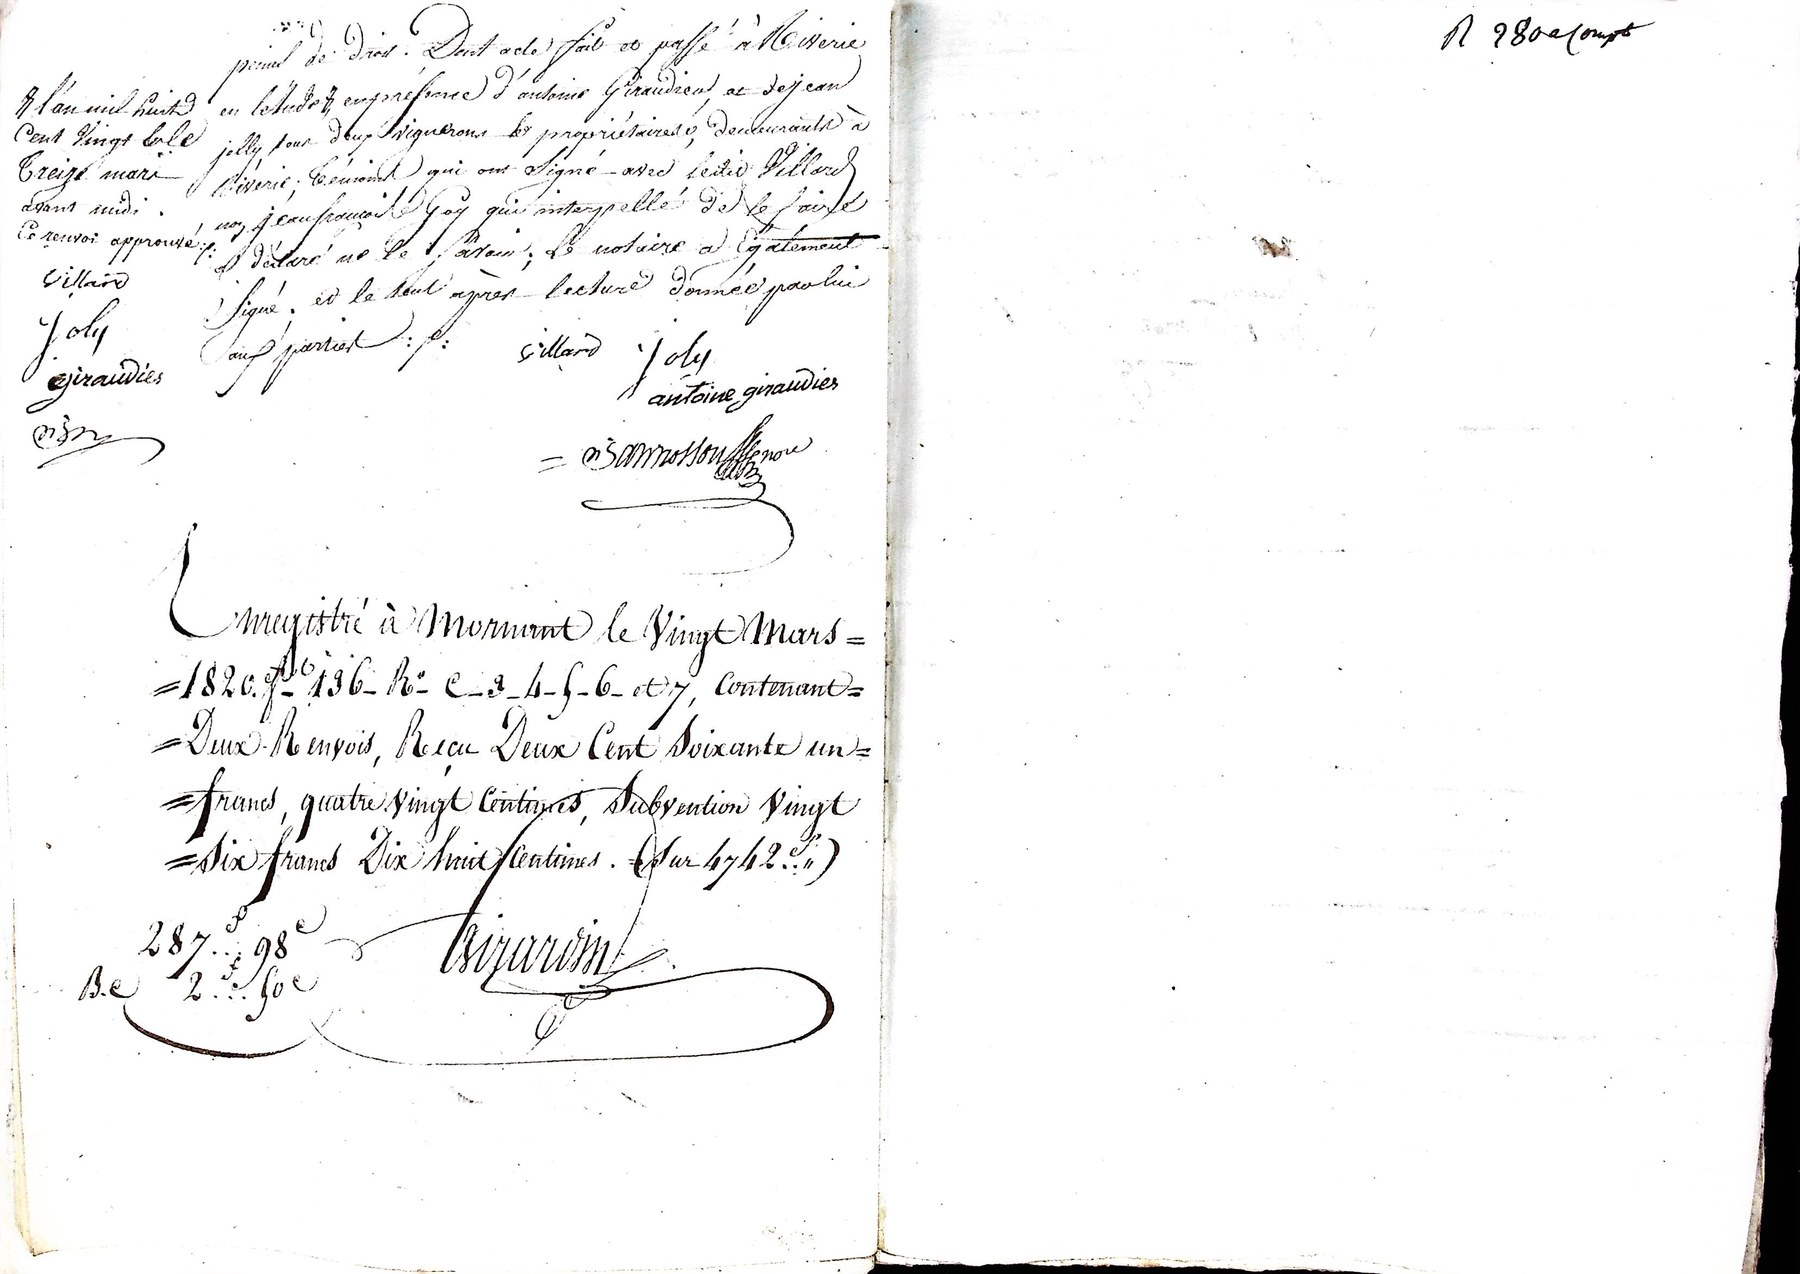 peine de droit. Dont acte fait et passé à Riverie
en l'étude, en présence d'antoine Giraudier, et de jean
jolly, tous deux vignerons et propriétaires, demeurants à
Riverie, témoins qui ont signé avec ledit Villard
non jeanfrançois Goy qui interpellé de le faire
a déclaré ne le savoir; le notaire a Également
signé, et le tout après lecture donnée par lui
aux parties
l'an mil huit
Cent Vingt le
treize mars
avant midi.
Ce renvoi approuvé
Villard
Joly
giraudier
Villard Joly
antoine giraudier
Enregistré à Mornant le Vingt Mars =
= 1820. fo 136 - Ro C - 3 - 4 - 5 - 6 - et 7, Contenant =
= Deux Renvois, Reçu Deux Cent Soixante un =
= francs, quatre vingt Centimes, Subvention Vingt
= Six francs Dix huit Centimes. (Sur 4742 f. ")
287 f. 98 c
2 f. 50 c
Girardin
R 280